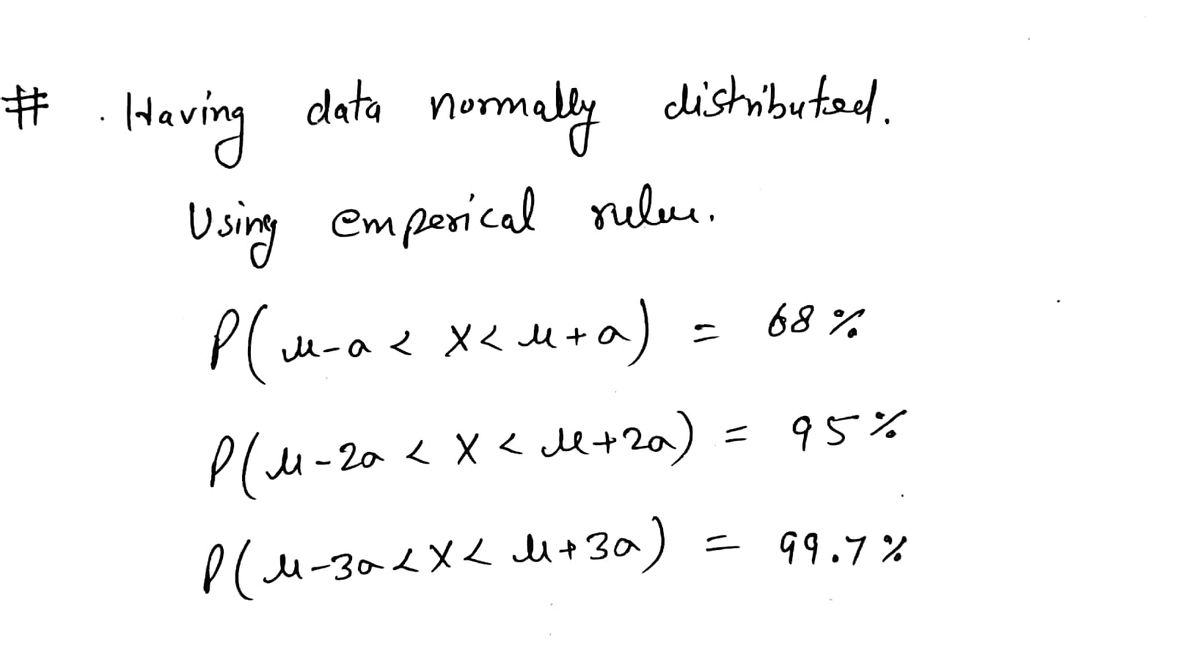 # . Having data normally distributed.
Using emperical rule.
P(μ-a < X < μ+a) = 68%
P(μ-2a < X < μ+2a) = 95%
P(μ-3a < X < μ+3a) = 99.7%